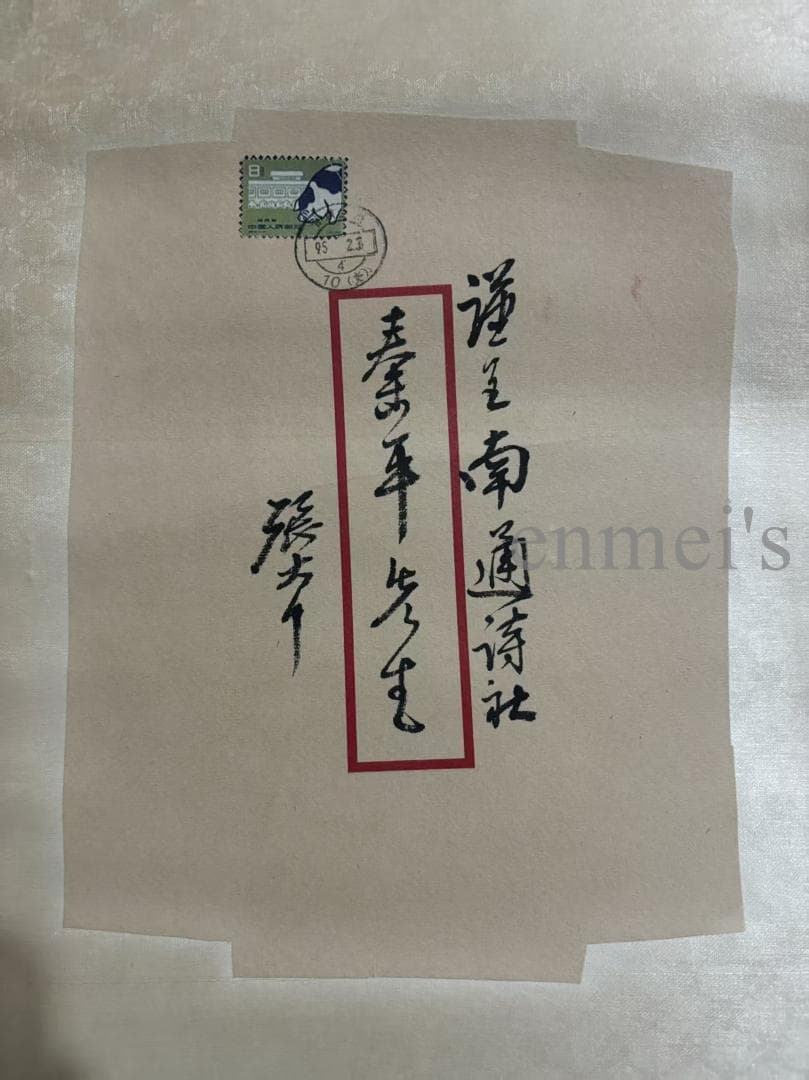 8
中国人民邮政
95 2.3
4
10(支)
谨呈南通诗社
先生
張大千
enmei's